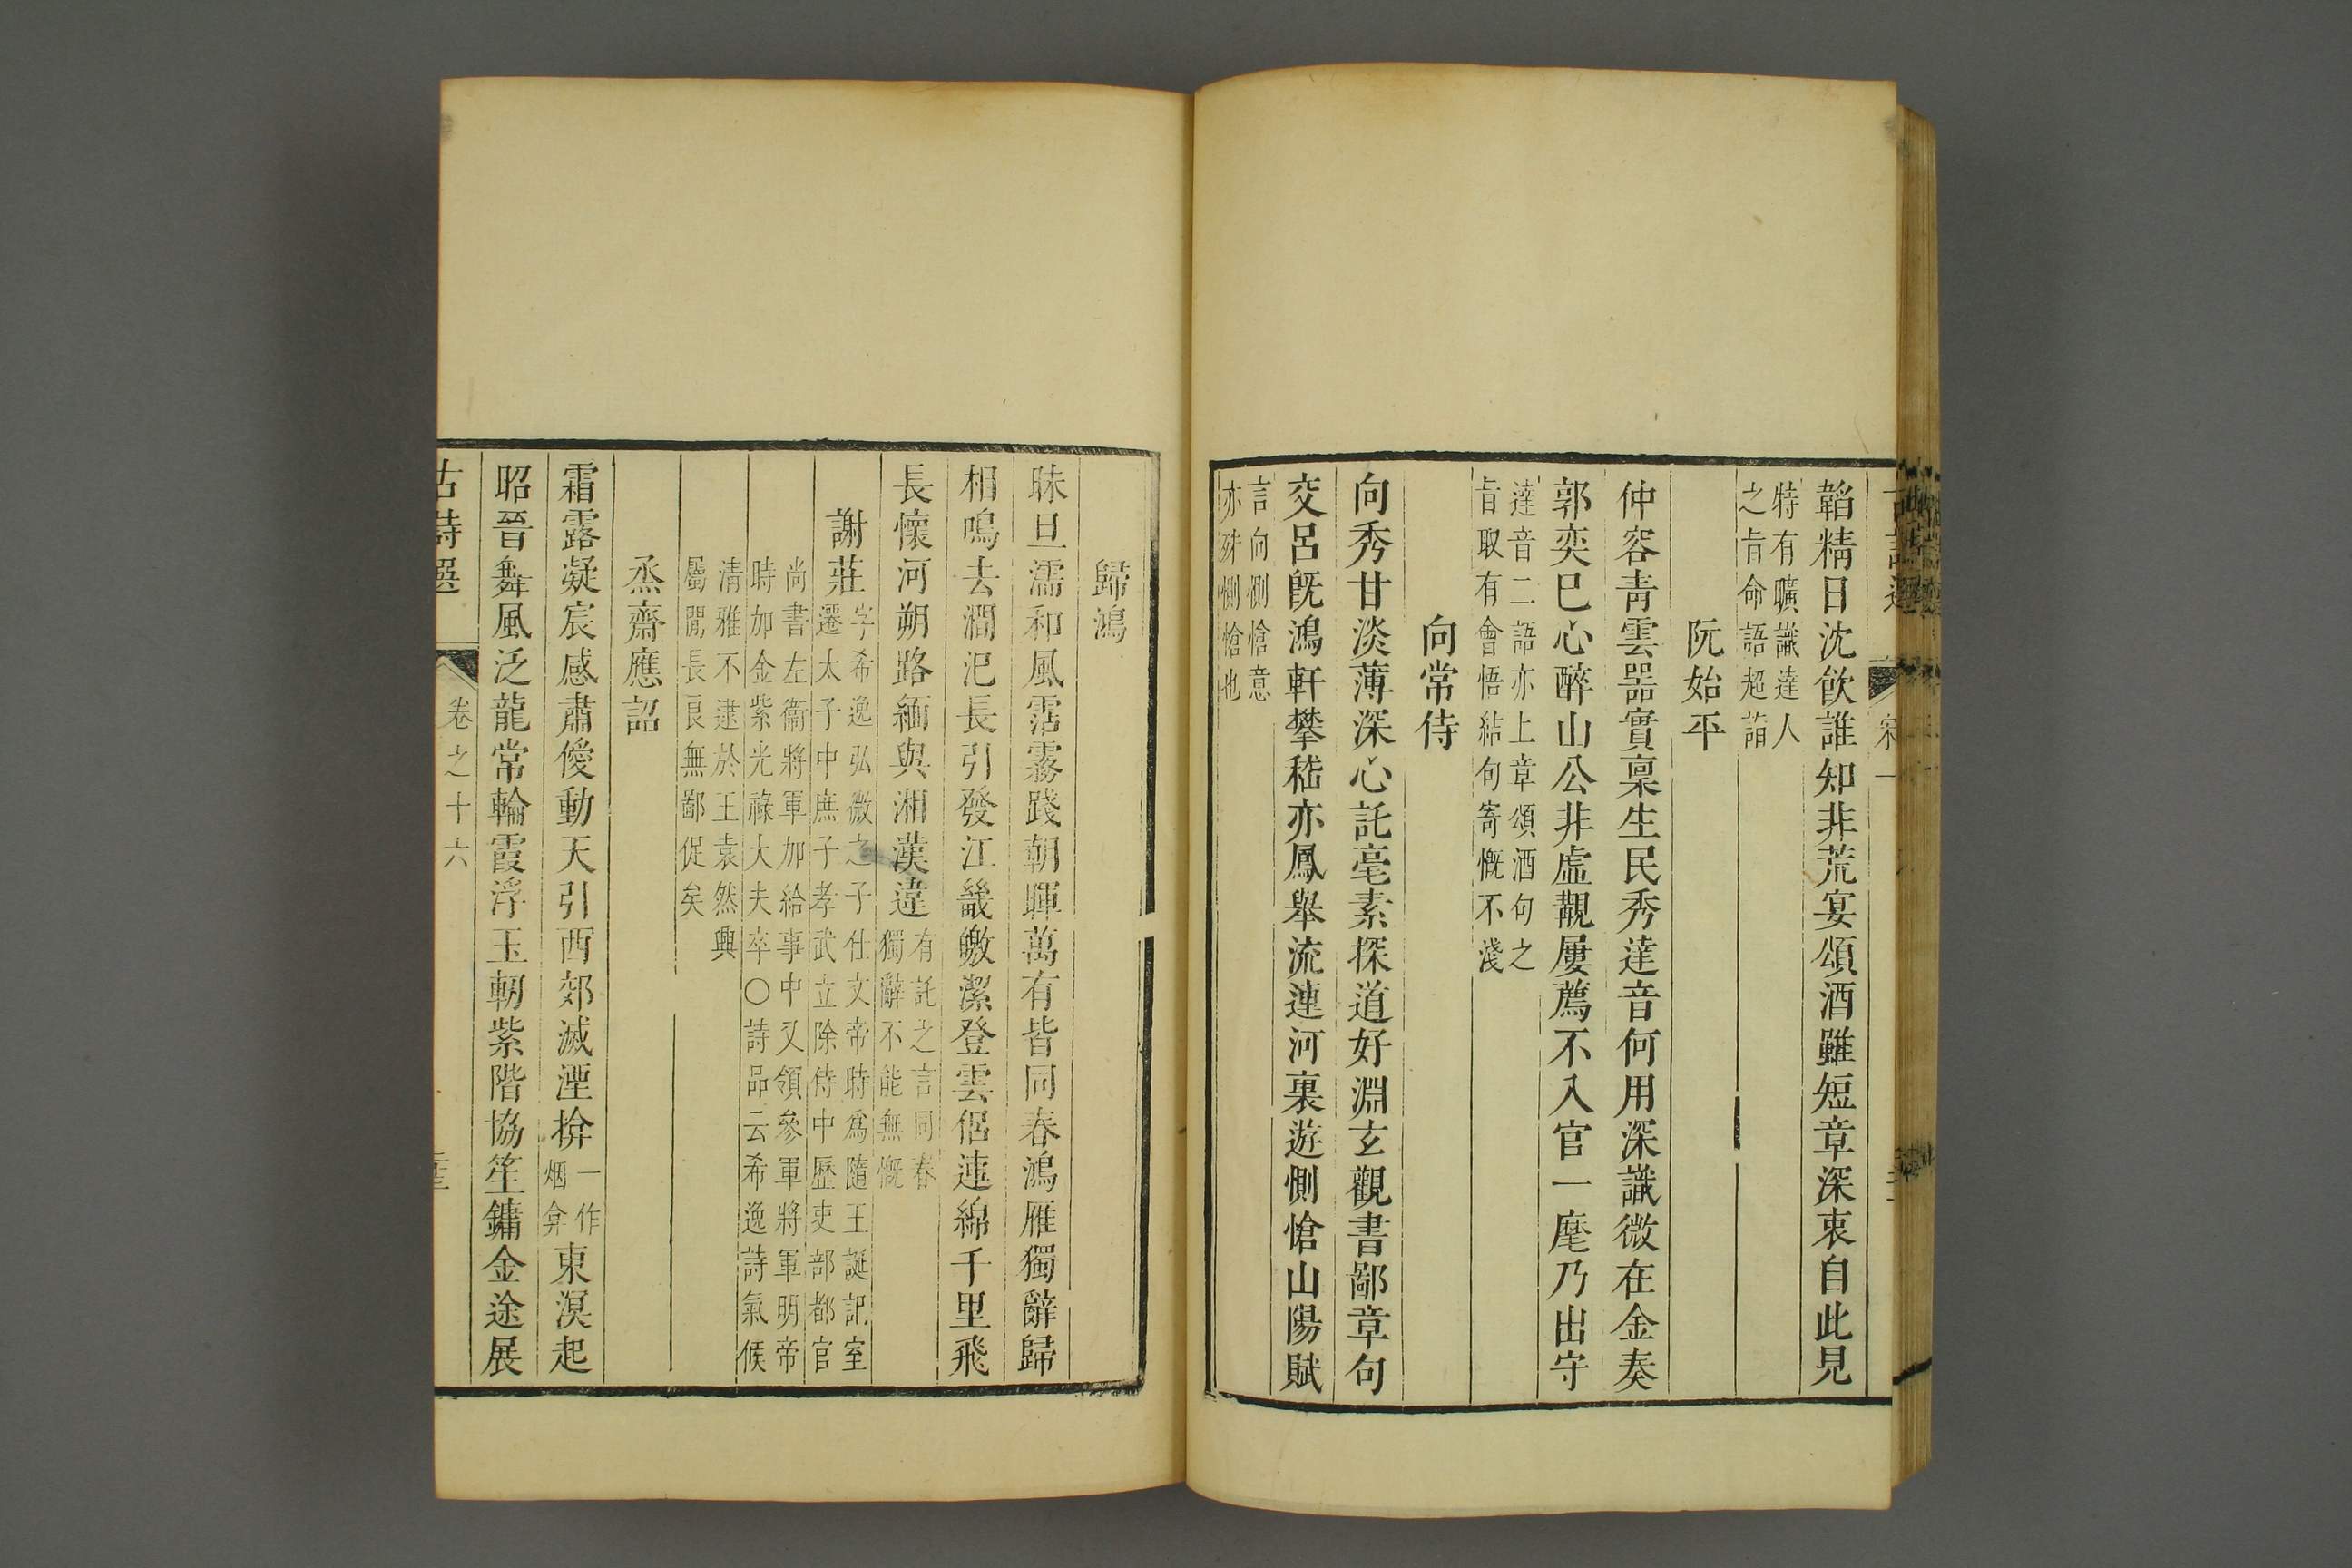 韜精日沈飲誰知非荒宴頌酒雖短章深衷自此見
特有曠識達人
之旨命語超詣
阮始平
仲容青雲噐實稟生民秀達音何用深識微在金奏
郭奕巳心醉山公非虛覯屢薦不入官一麾乃出守
達音二語亦上章頌酒句之
旨取有會悟結句寄慨不淺
向常侍
向秀甘淡薄深心託毫素探道好淵玄觀書鄙章句
交呂旣鴻軒攀嵇亦鳳舉流連河裏遊惻愴山陽賦
言向惻愴意
亦殊惻愴也
歸鴻
昧旦濡和風霑露踐朝暉萬有皆同春鴻雁獨辭歸
相鳴去澗汜長引發江畿皦潔登雲侶連綿千里飛
長懷河朔路緬與湘漢違
有託之言同春
獨辭不能無慨
謝莊
字希逸弘微之子仕文帝時爲隨王誕記室
遷太子中庶子孝武立除侍中歷吏部都官
尚書左衞將軍加給事中又領參軍將軍明帝
時加金紫光祿大夫卒〇詩品云希逸詩氣候
清雅不逮於王袁然興
屬閒長良無鄙促矣
烝齋應詔
霜露凝宸感肅僾動天引西郊滅湮揜
一作
烟弇
東溟起
昭晉舞風泛龍常輪霞浮玉軔紫階協笙鏞金途展
古詩選
卷之十六